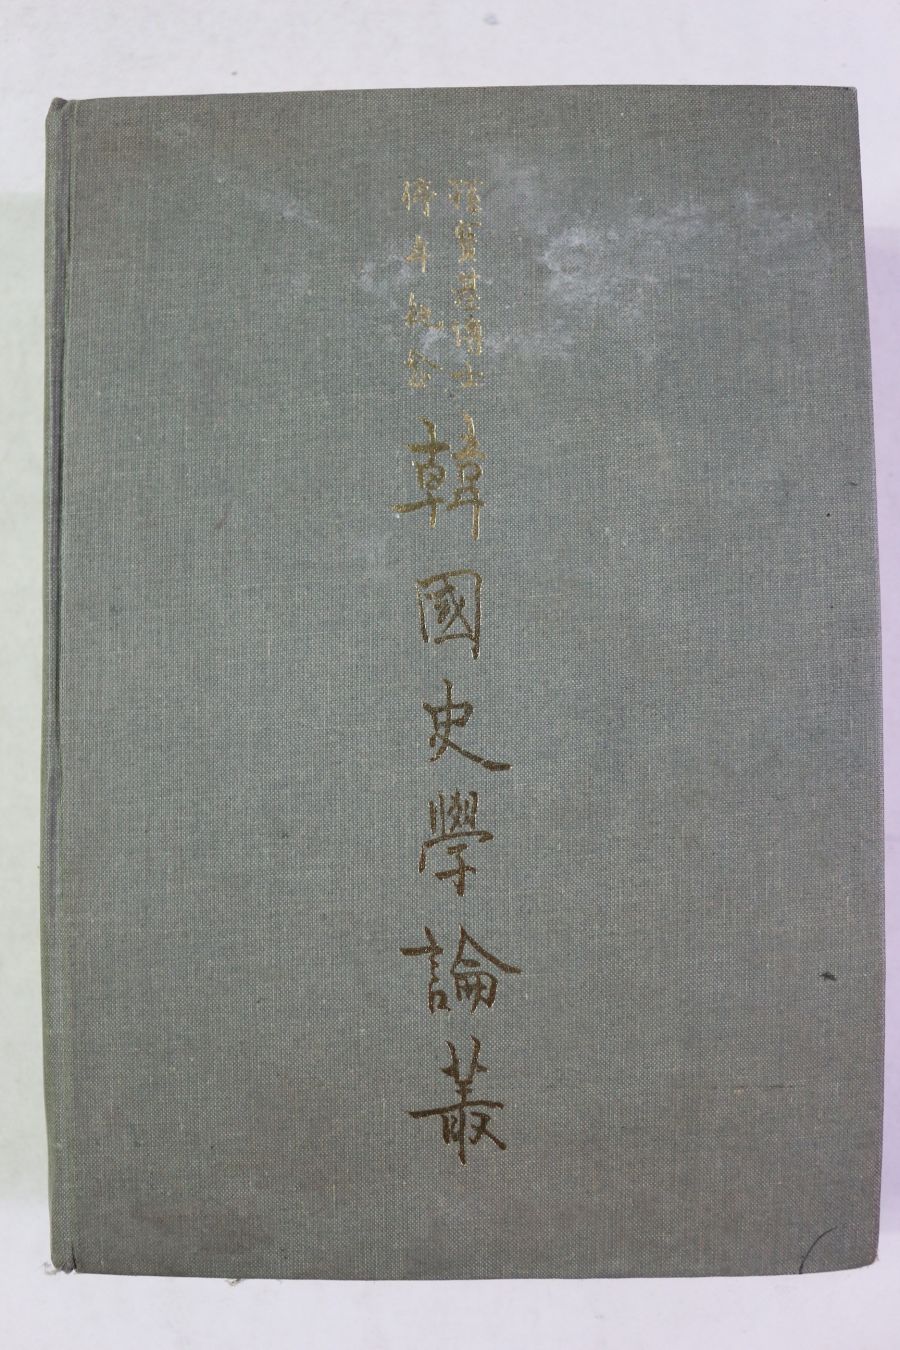 孫寶基博士
停年紀念
韓國史學論叢